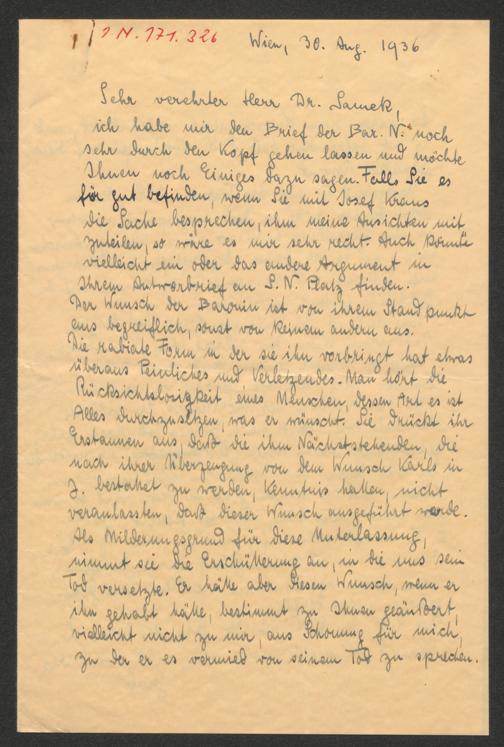 I.N. 171.326
Wien, 30. Aug. 1936
Sehr verehrter Herr Dr. Samek,
ich habe mir den Brief der Bar. N. noch
sehr durch den Kopf gehen lassen und möchte
Ihnen noch Einiges dazu sagen. Falls Sie es
für gut befinden, wenn Sie mit Josef Kraus
die Sache besprechen, ihm meine Ansichten mit
zuteilen, so wäre es mir sehr recht. Auch könnte
vielleicht ein oder das andere Argument in
Ihrem Antwortbrief an S. N. Platz finden.
Der Wunsch der Baronin ist von ihrem Standpunkt
aus begreiflich, sonst von keinem andern aus.
Die rabiate Form in der sie ihn vorbringt hat etwas
überaus Peinliches und Verletzendes. Man hört die
Rücksichtslosigkeit eines Menschen, dessen Art es ist
Alles durchzusetzen, was er wünscht. Sie drückt ihr
Erstaunen aus daß die ihm Nächststehenden, die
nach ihrer Überzeugung von dem Wunsch Karls in
J. bestattet zu werden, Kenntnis hatten, nicht
veranlassten, daß dieser Wunsch ausgeführt werde.
Als Milderungsgrund für diese Unterlassung,
nimmt sie die Erschütterung an, in die uns sein
Tod versetzte. Er hätte aber diesen Wunsch, wenn er
ihn gehabt hätte, bestimmt zu Ihnen geäußert,
vielleicht nicht zu mir, aus Schonung für mich,
zu der er es vermied von seinem Tod zu sprechen.